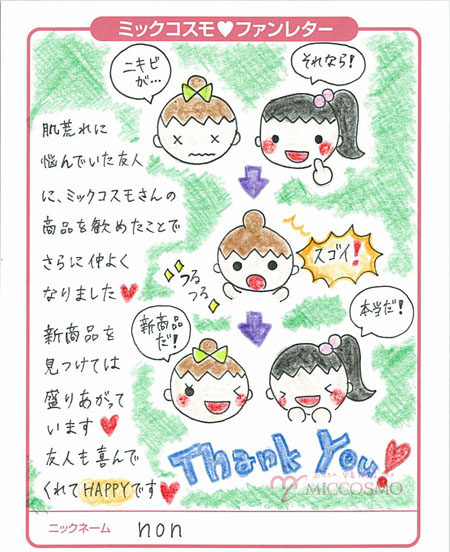 ミックコスモ♥ファンレター
ニキビ
が…
それなら!
肌荒れに
悩んでいた友人
に、ミックコスモさんの
商品を歓めたことで
さらに仲よく
なりました♥
スゴイ!
つる
つる
新商品
だ!
本当だ!
新商品を
見つけては
盛りあがって
います♥
友人も喜んで
くれてHAPPYです♥
Thank You!
MICCOSMO
ニックネーム
non